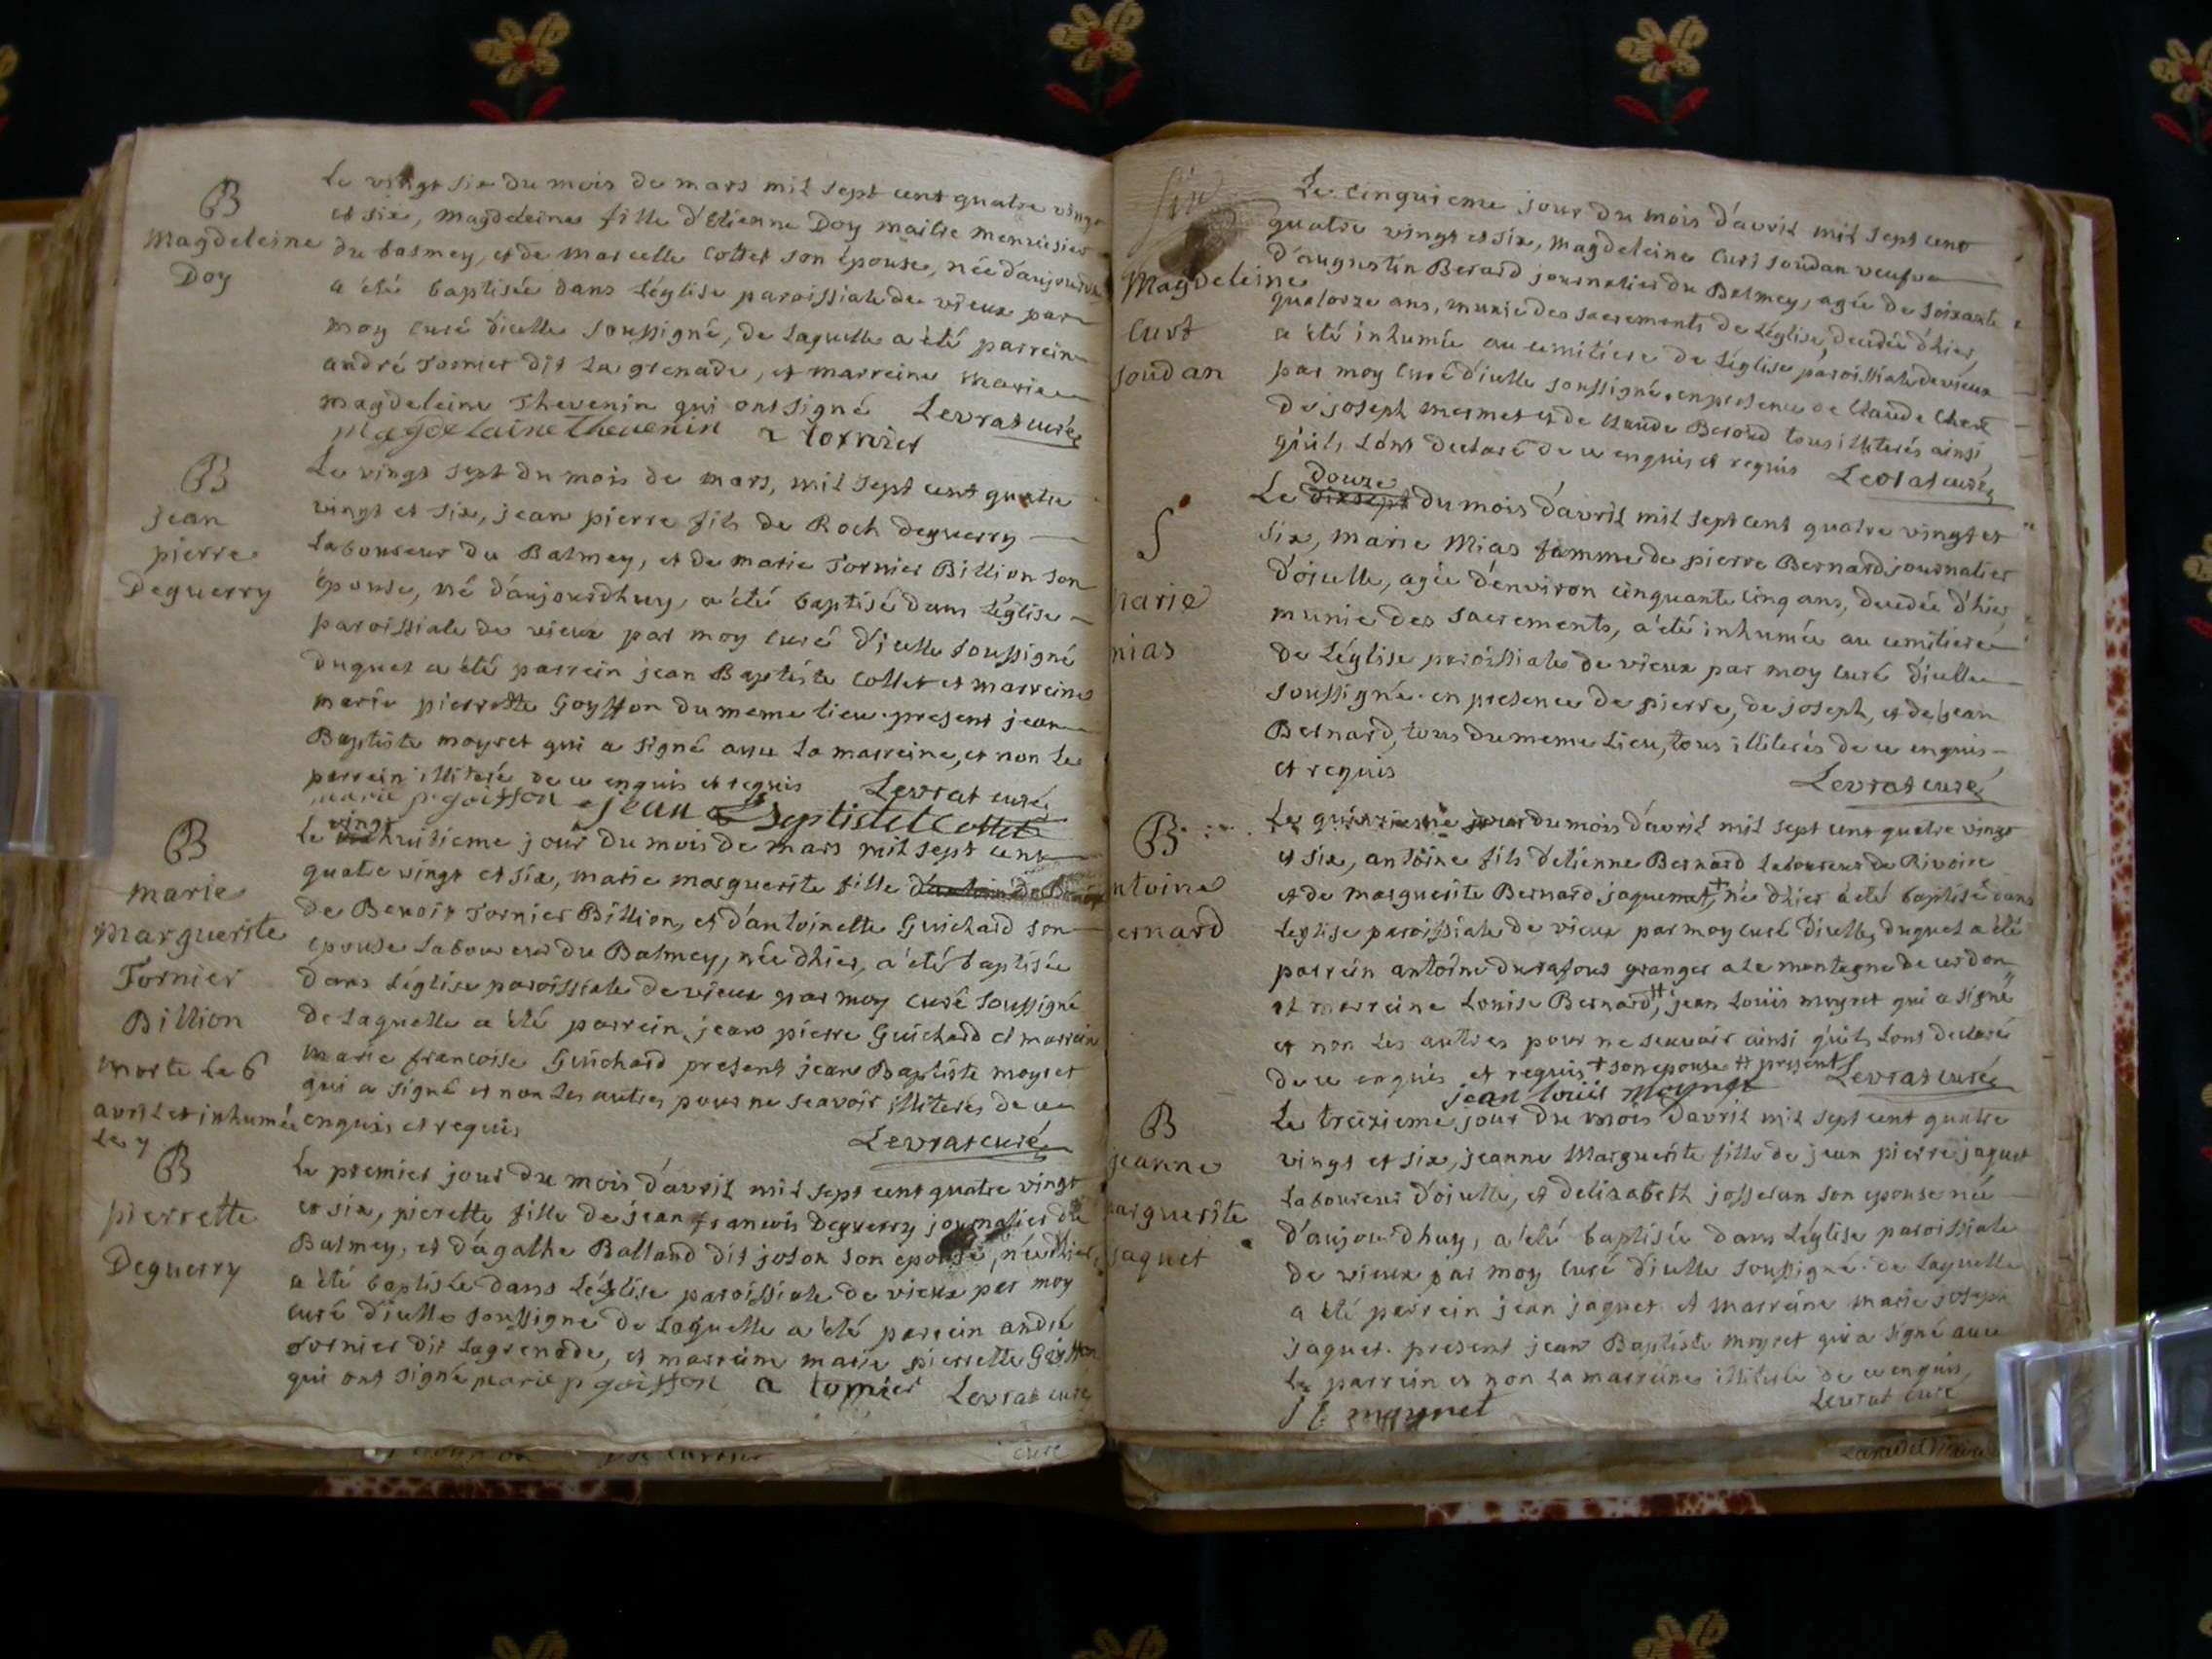 B
Magdeleine
Doy
Le vingt six du mois de mars mil sept cent quatre vingt
et six, magdeleine fille d'Etienne Doy maitre menuisier
du balmey, et de marcelle Collet son épouse, née d'aujourdhuy
a été baptisée dans l'église paroissiale de vieux par
moy curé d'icelle soussigné, de laquelle a été parrein
andré Tornier dit la grenade, et marreine marie
magdeleine Thevenin qui ont signé Levrat curé
Magdelaine thevenin a tornier
B
jean
pierre
Deguerry
Le vingt sept du mois de mars, mil sept cent quatre
vingt et six, jean pierre fils de Roch Deguerry
Laboureur du Balmey, et de marie Tornier Billion son
épouse, né d'aujourdhuy, a été baptisé dans l'église
paroissiale de vieux par moy curé d'icelle soussigné
duquel a été parrein jean Baptiste Collet et marreine
marie pierrette Goyffon du meme lieu. present jean
Baptiste moyret qui a signé avec la marreine, et non le
parrein illiteré de ce enquis et requis Levrat curé
marie p goiffon jean Baptiste Collet
B
marie
Marguerite
Tornier
Billion
morte le 6
avril et inhumée
le 7
Le vingt huitieme jour du mois de mars mil sept cent
quatre vingt et six, marie marguerite fille
de Benoit Tornier Billion, et d'antoinette Guichard son
epouse laboureur du Balmey, née d'hier, a été baptisée
dans l'église paroissiale de vieux par moy curé soussigné
de laquelle a été parrein jean pierre Guichard et marreine
marie francoise Guichard present jean Baptiste moyret
qui a signé et non les autres pour ne scavoir illiterés de ce
enquis et requis
Levrat curé
B
pierrette
Deguerry
Le premier jour du mois d'avril mil sept cent quatre vingt
et six, pierette fille de jean francois Deguerry journalier du
Balmey, et d'agathe Balland dit joson son epouse, née d'hier,
a été baptisée dans l'église paroissiale de vieux par moy
curé d'icelle soussigné de laquelle a été parrein andré
Tornier dit lagrenade, et marreine marie pierrette Goyffon
qui ont signé marie p goiffon a tornier Levrat curé
Magdeleine
Curt
soudan
Le cinquieme jour du mois d'avril mil sept cent
quatre vingt et six, magdeleine Curt soudan veufve
d'augustin Berard journalier du Balmey, agée de soixante
quatorze ans, munie des sacrements de l'église, decedée d'hier,
a été inhumée au cemitiere de l'église paroissiale de vieux
par moy curé d'icelle soussigné. en presence de Claude
de joseph mermet et de claude Berard tous illiterés ainsi
qu'ils l'ont declaré de ce enquis et requis Levrat curé
S
marie
mias
douze
Le dixsept du mois d'avril mil sept cent quatre vingt et
six, marie Mias famme de pierre Bernard journalier
d'oisselle, agée d'environ cinquante cinq ans, decedée d'hier,
munie des sacrements, a été inhumée au cemitiere
de l'église paroissiale de vieux par moy curé d'icelle
soussigné. en presence de pierre, de joseph, et de jean
Bernard, tous du meme lieu, tous illiterés de ce enquis
et requis
Levrat curé
B
ntoine
ernard
Le quinzieme jour du mois d'avril mil sept cent quatre vingt
et six, antoine fils d'etienne Bernard laboureur de Rivoire
et de marguerite Bernard jaquemet,+ né d'hier a été baptisé dans
l'eglise paroissiale de vieux par moy curé d'icelle, duquel a été
parrein antoine durafour granger a la montagne de cerdon
et marreine Louise Bernard,++ jean Louis moyret qui a signé
et non les autres pour ne scavoir ainsi qu'ils l'ont declaré
de ce enquis et requis + son epouse ++ present Levrat curé
jean louis Moynet
B
jeanne
arguerite
jaquet
Le treizieme jour du mois d'avril mil sept cent quatre
vingt et six, jeanne Marguerite fille de jean pierre jaquet
laboureur d'oiselle, et d'elizabeth josseran son epouse née
d'aujourdhuy, a été baptisée dans l'église paroissiale
de vieux par moy curé d'icelle soussigné. de laquelle
a été parrein jean jaquet et marreine marie joseph
jaquet. present jean Baptiste moyret qui a signé avec
le parrein et non la marreine illiterée de ce enquis,
J B moyret
Levrat curé